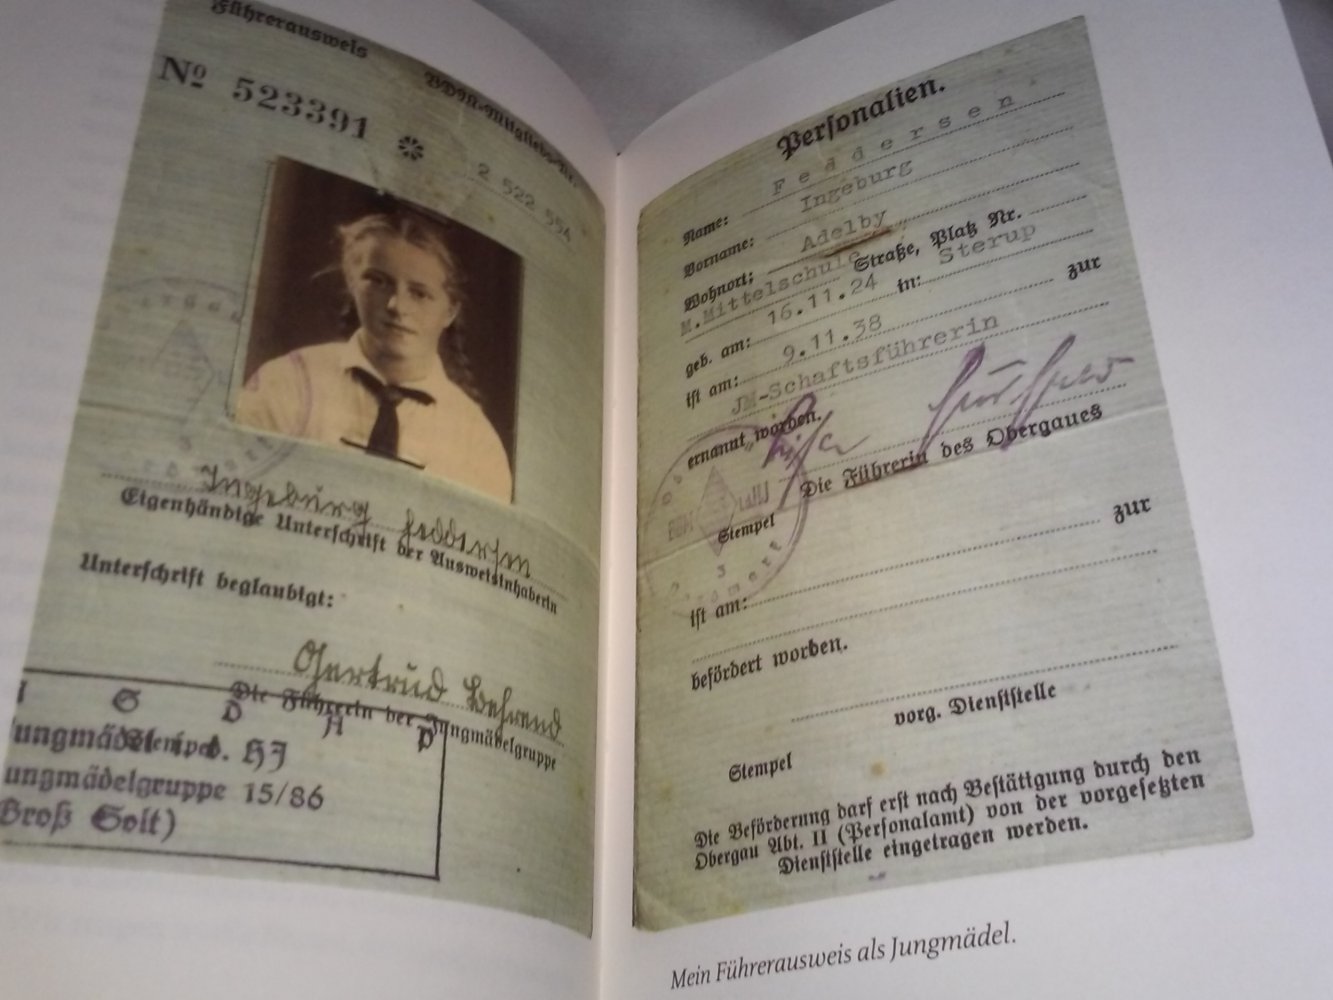 Führerausweis
BDM-Mitglieds-Nr.
№ 523391
2 522 594
Ingeburg Feddersen
Eigenhändige Unterschrift der Ausweisinhaberin
Unterschrift beglaubigt:
Gertrud Behrend
Die Führerin der Jungmädelgruppe
S D A P
Stempel
Jungmädel i. d. HJ
Jungmädelgruppe 15/86
Groß Solt)
Personalien.
Name: Feddersen
Vorname: Ingeburg
Wohnort: Adelby
M.Mittelschule Straße, Platz Nr.
geb. am: 16.11.24 in: Sterup
ist am: 9.11.38 zur
JM-Schaftsführerin
ernannt worden.
Die Führerin des Obergaues
Stempel
BDM
ist am: zur
befördert worden.
vorg. Dienststelle
Stempel
Die Beförderung darf erst nach Bestätigung durch den
Obergau Abt. II (Personalamt) von der vorgesetzten
Dienststelle eingetragen werden.
Mein Führerausweis als Jungmädel.